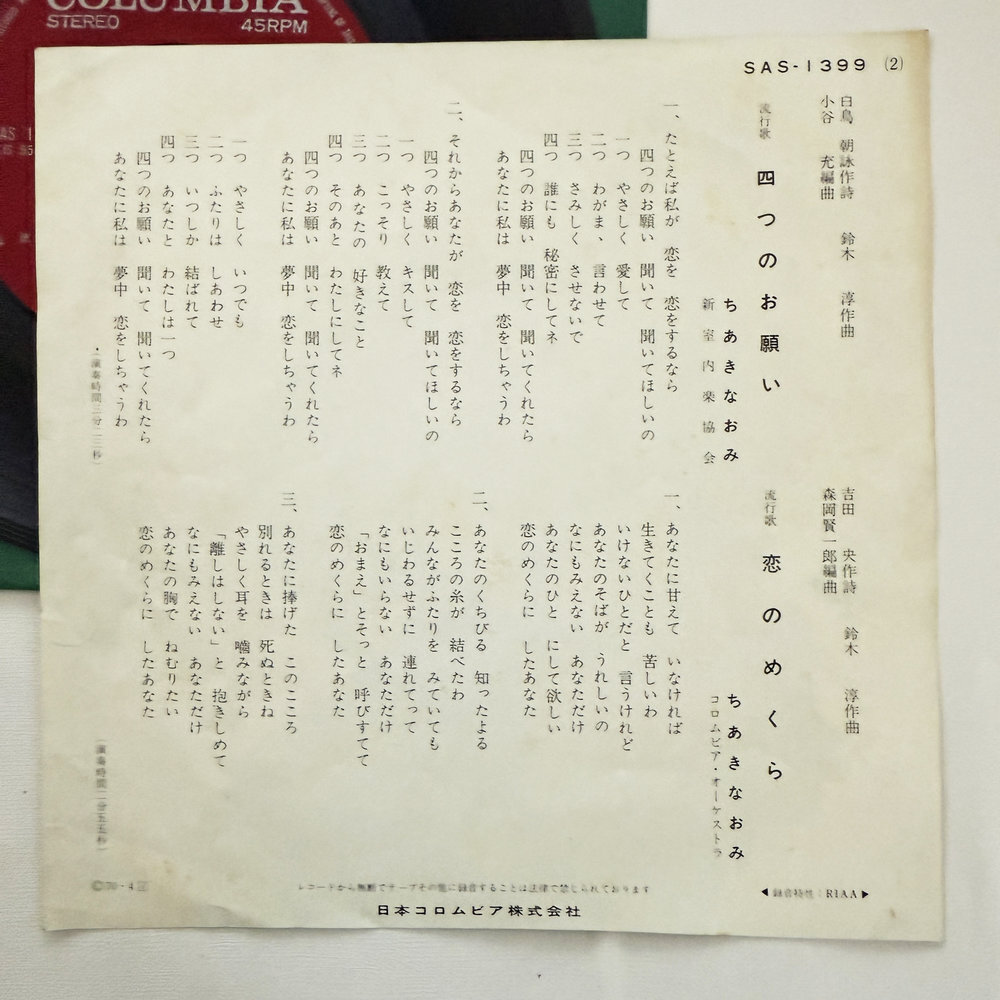 COLUMBIA
STEREO 45RPM
SAS-1399 (2)
白鳥 朝詠作詩 鈴木 淳作曲
小谷 充編曲
流行歌 四つのお願い
ちあきなおみ
新室内楽協会
一、たとえば私が 恋を 恋をするなら
四つのお願い 聞いて 聞いてほしいの
一つ やさしく 愛して
二つ わがまゝ 言わせて
三つ さみしく させないで
四つ 誰にも 秘密にしてネ
四つのお願い 聞いて 聞いてくれたら
あなたに私は 夢中 恋をしちゃうわ
二、それからあなたが 恋を 恋をするなら
四つのお願い 聞いて 聞いてほしいの
一つ やさしく キスして
二つ こっそり 教えて
三つ あなたの 好きなこと
四つ そのあと わたしにしてネ
四つのお願い 聞いて 聞いてくれたら
あなたに私は 夢中 恋をしちゃうわ
一つ やさしく いつでも
二つ ふたりは しあわせ
三つ いつしか 結ばれて
四つ あなたと わたしは一つ
四つのお願い 聞いて 聞いてくれたら
あなたに私は 夢中 恋をしちゃうわ
吉田 央作詩 鈴木 淳作曲
森岡賢一郎編曲
流行歌 恋のめくら
ちあきなおみ
コロムビア・オーケストラ
一、あなたに甘えて いなければ
生きてくことも 苦しいわ
いけないひとだと 言うけれど
あなたのそばが うれしいの
なにもみえない あなただけ
あなたのひと にして欲しい
恋のめくらに したあなた
二、あなたのくちびる 知ったよる
こころの糸が 結べたわ
みんながふたりを みていても
いじわるせずに 連れてって
なにもいらない あなただけ
「おまえ」とそっと 呼びすてて
恋のめくらに したあなた
三、あなたに捧げた このこころ
別れるときは 死ぬときね
やさしく耳を 噛みながら
「離しはしない」と 抱きしめて
なにもみえない あなただけ
あなたの胸で ねむりたい
恋のめくらに したあなた
レコードから無断でテープその他に録音することは法律で禁じられております
◀録音特性：RIAA▶
日本コロムビア株式会社